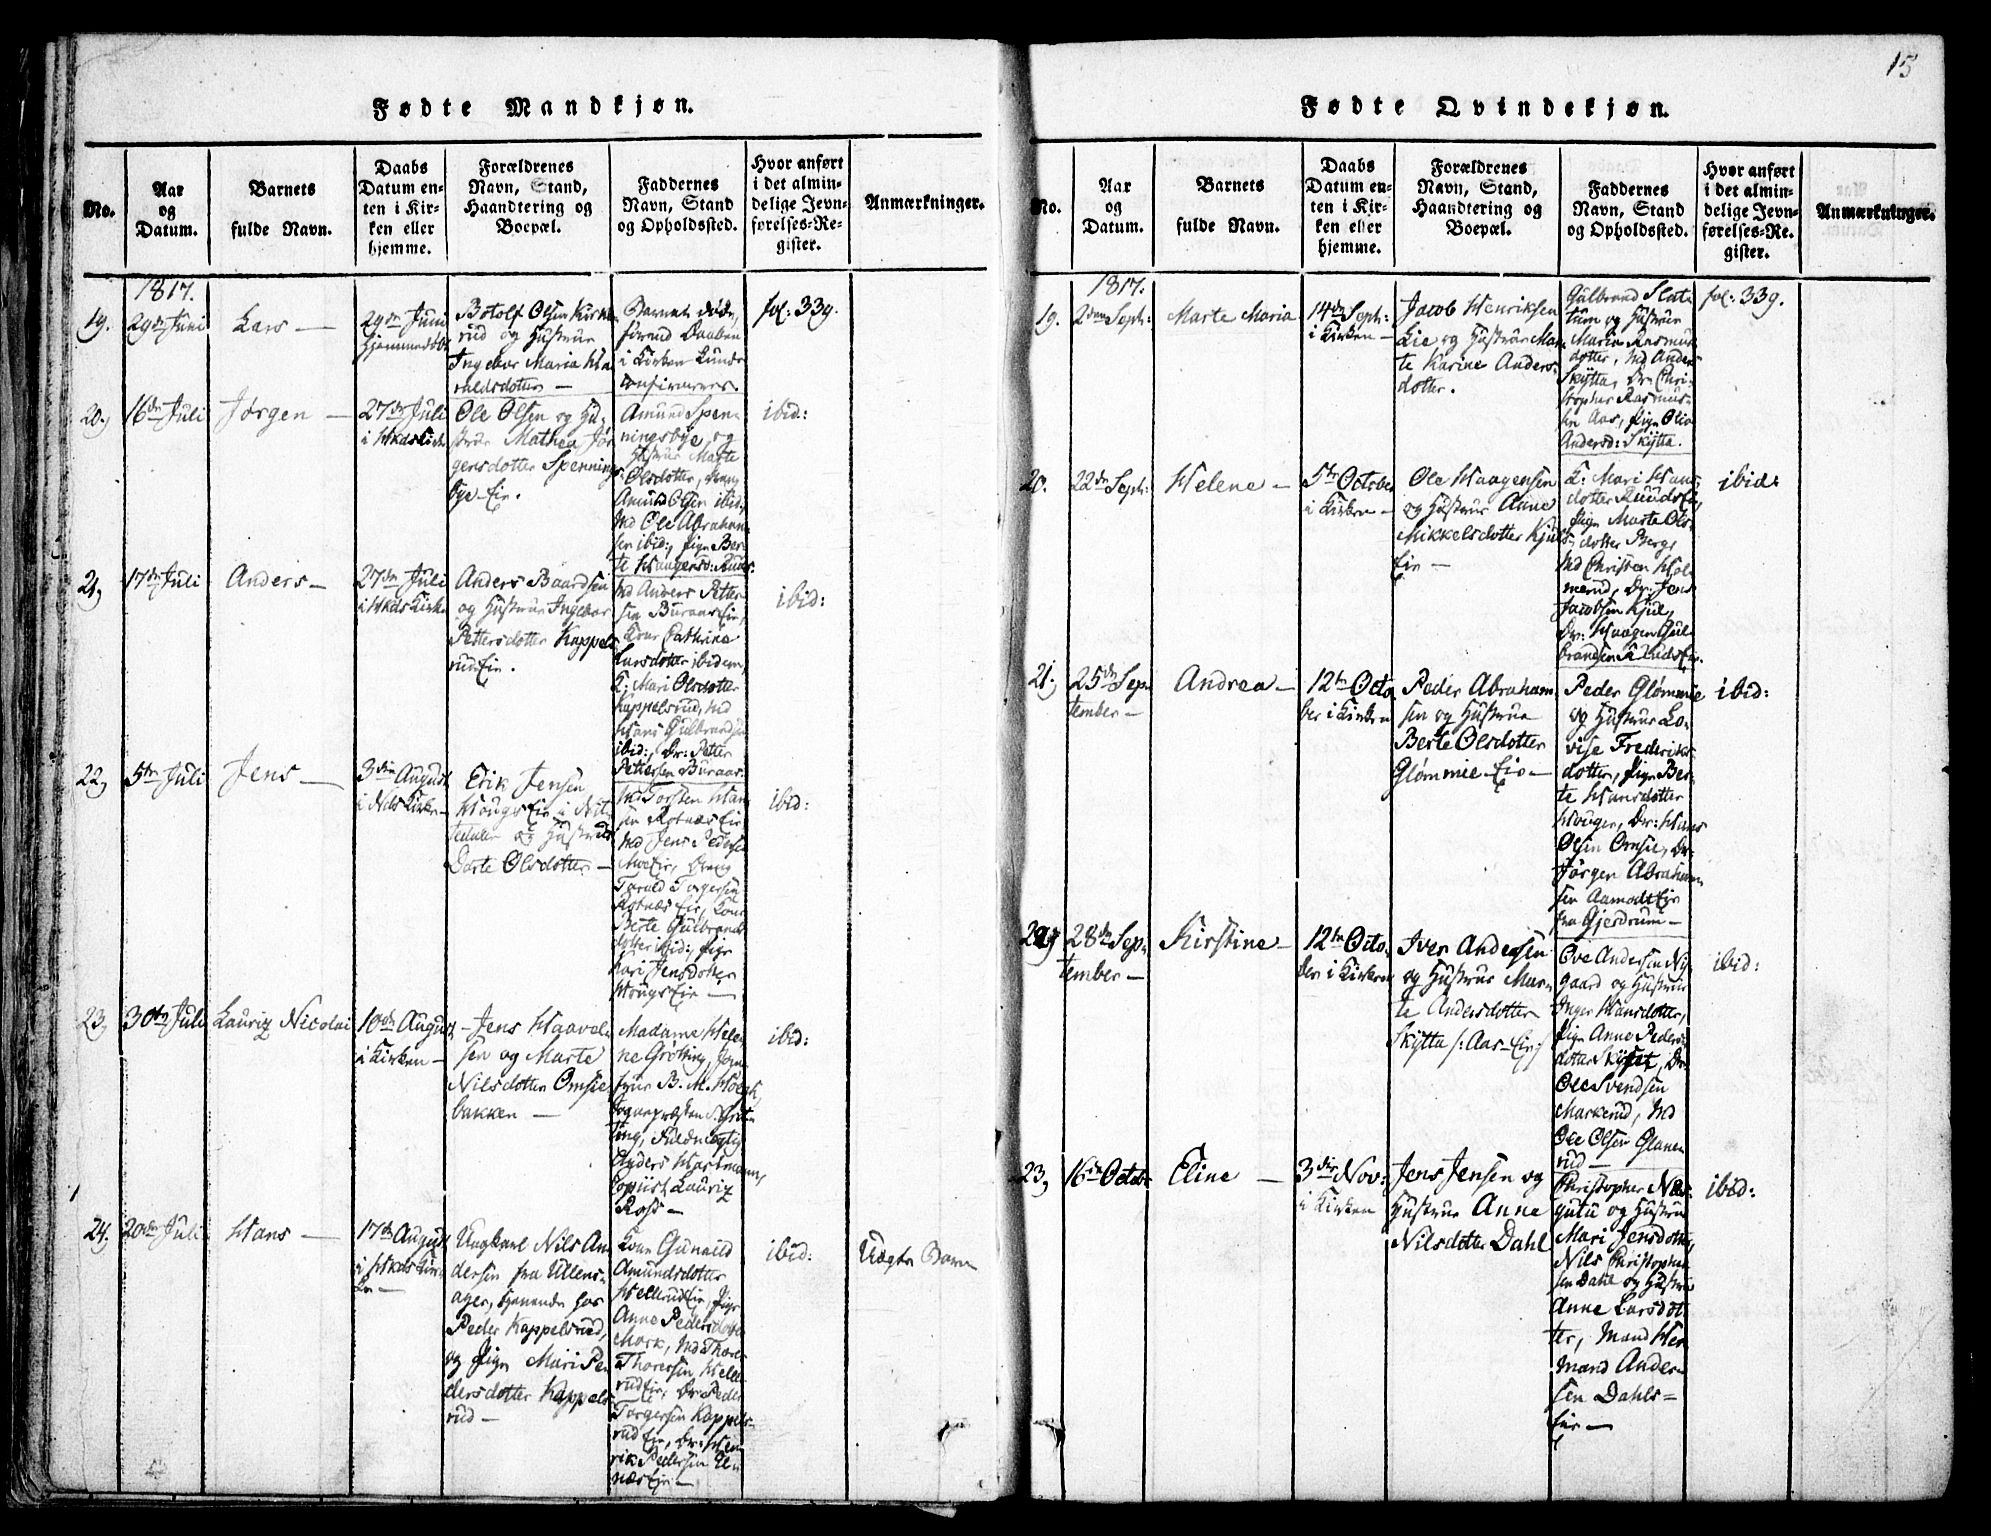 15
Fødte Mandkjøn.
No.
Aar
og
Datum.
Barnets
fulde Navn.
Daabs
Datum en-
ten i Kir-
ken eller
hjemme.
Forældrenes
Navn, Stand,
Haandtering og
Boepæl.
Faddernes
Navn, Stand
og Opholdssted.
Hvor anført
i det almin-
delige Jevn-
førelses-Re-
gister.
Anmærkninger.
1817.
19.
29de Juni
Lars —
29de Juni
hjemmedøbt
Botolf Olsen Kirke
rud og Hustrue
Ingebor Maria Ha
raldsdotter —
Barnet døde
førend Daaben
i Kirken kunde
confirmeres.
fol: 339.
20,
16de Juli
Jørgen —
27de Juli
i Hkds Kirke
Ole Olsen og Hu-
strue Mathea Jør
gensdotter Spennings
bye-Eie.
Amund Spen-
ningsbye, og
Hustrue Marte
Olsdotter, Dreng
Amund Olsen ibid:,
Md Ole Abraham
sen ibid:, Pige Ber-
te Haagensd: Ruds:
ibid:
21,
17de Juli
Anders —
27de Juli
i Hkds Kirke
Anders Baardsen
og Hustrue Ingebor
Pettersdotter Kappels
rudEie.
Md Anders Petter
sen BuraasEie,
Kone Cathrine
Larsdotter ibidem,
K: Mari Olsdotter
Kappelsrud, Md
Hans Gulbrandsen
ibid:, Dr: Petter
Pettersen Buraas.
ibid:
22,
5te Juli
Jens —
3die August
i Nds Kirke —
Erik Jensen
HougsEie i Nit
tedalen og Hustrue
Dorte Olsdotter —
Md Torsten Han
sen RotnæsEie
Md Jens Peders:
MoeEie, Dreng
Torald Torgersen
RotnæsEie, Kone
Berte Gulbrands
dotter ibid:, Pige
Kari Jensdotter
HougsEie —
ibid:
23,
30te Juli
Lauriz Nicolai
10de August
i Kirken —
Jens Haavel
sen og Marte
Nilsdotter Omsie
bakken —
Madame Hele-
ne Grøtting, Jom
frue B. M. Hoegh,
Sognepræsten N. Grøt
ting, Fuldmægtig
Anders Hartmann,
Copiist Lauriz
Ross —
ibid:
24.
20de Juli
Hans —
17de August
i Hkds Kir-
ke —
Ungkarl Nils An
dersen fra Ullens-
ager, tjenende hos
Peder Kappelsrud,
og Pige Mari Pe
dersdotter Kappels-
rud —
Kone Gunild
Amundsdotter
HellerudEie, Pige
Anne Pedersdotter
Mork, Md Thore
Thoresen Helle
rudEie, Dr: Peder
Torgersen Kappels-
rudEie, Dr: Hen
rik Pedersen El-
næsEie —
ibid:
Uægte Barn
Fødte Qvindekjøn.
No.
Aar
og
Datum.
Barnets
fulde Navn.
Daabs
Datum en-
ten i Kir-
ken eller
hjemme.
Forældrenes
Navn, Stand,
Haandtering og
Boepæl.
Faddernes
Navn, Stand
og Opholdssted.
Hvor anført
i det almin-
delige Jevn-
førelses-Re-
gister.
Anmærkninger.
1817.
19.
2den Septr:
Marte Maria
14de Septr:
i Kirken —
Jacob Henriksen
Lie og Hustrue Mar
te Karine Anders-
dotter.
Gulbrand Slat
tum og Hustrue
Maria Rasmus
dotter, Md Anders
Skytta, Dr: Chri-
stopher Rasmus-
sen Aas, Pige Olia
Andersd: Skytta.
fol: 339.
20.
22de Septr:
Helene —
5te October
i Kirken —
Ole Haagensen
og Hustrue Anne
Mikkelsdotter Kjuls
Eie —
K: Mari Hans
dotter RuudsEie,
Pige Marte Ols-
dotter Berg,
Md Christen Hol
merud, Dr: Jens
Jacobsen Kjul,
Dr: Haagen Gul-
brandsen RuudsEie.
ibid:
21.
25de Sep-
tember —
Andrea —
12te Octo
ber i Kirken
Peder Abraham
sen og Hustrue
Berte Olsdotter
Glømmie Eie —
Peder Glømmie
og Hustrue Lo-
vise Frederiks
dotter, Pige Ber-
te Hansdotter
Hougen, Dr: Hans
Olsen Omsie, Dr:
Jørgen Abraham
sen AamodtEie
fra Gjerdrum —
ibid:
22,
28de Sep-
tember —
Kirstine —
12te Octo-
ber i Kirken
Iver Andersen
og Hustrue Mar-
te Andersdotter
Skytta /: Aas-Eie
Ove Andersen Ny-
gaard og Hustrue
Inger Hansdotter,
Pige Anne Peders-
dotter Skytta, Dr:
Ole Svendsen
Markerud, Md
Ole Olsen Glaner
rud —
ibid:
23,
16de Octobr
Eline —
3die Nov:
i Kirken
Jens Jensen og
Hustrue Anne
Nilsdotter Dahl
Christopher Næs-
gutu og Hustrue
Mari Jensdotter,
Nils Christopher
sen Dahl og Hustrue
Anne Larsdot
ter, Mand Her
mand Ander-
sen Dahls-
Eie —
ibid: